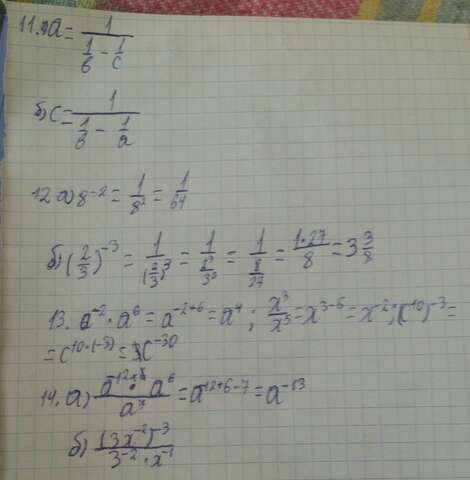 11. а) a = 1/(1/b - 1/c)
б) c = 1/(1/b - 1/a)
12. а) 8⁻² = 1/8² = 1/64
б) (2/3)⁻³ = 1/(2/3)³ = 1/(2³/3³) = 1/(8/27) = 1·27/8 = 3 3/8
13. a⁻² · a⁶ = a⁻²⁺⁶ = a⁴ ; x³/x⁵ = x³⁻⁵ = x⁻² ; (c¹⁰)⁻³ =
= c¹⁰·⁽⁻³⁾ = c⁻³⁰
14. а) a⁻¹² · a⁶/a⁷ = a⁻¹²⁺⁶⁻⁷ = a⁻¹³
б) (3x⁻²)⁻³/(3⁻² · x⁻¹)